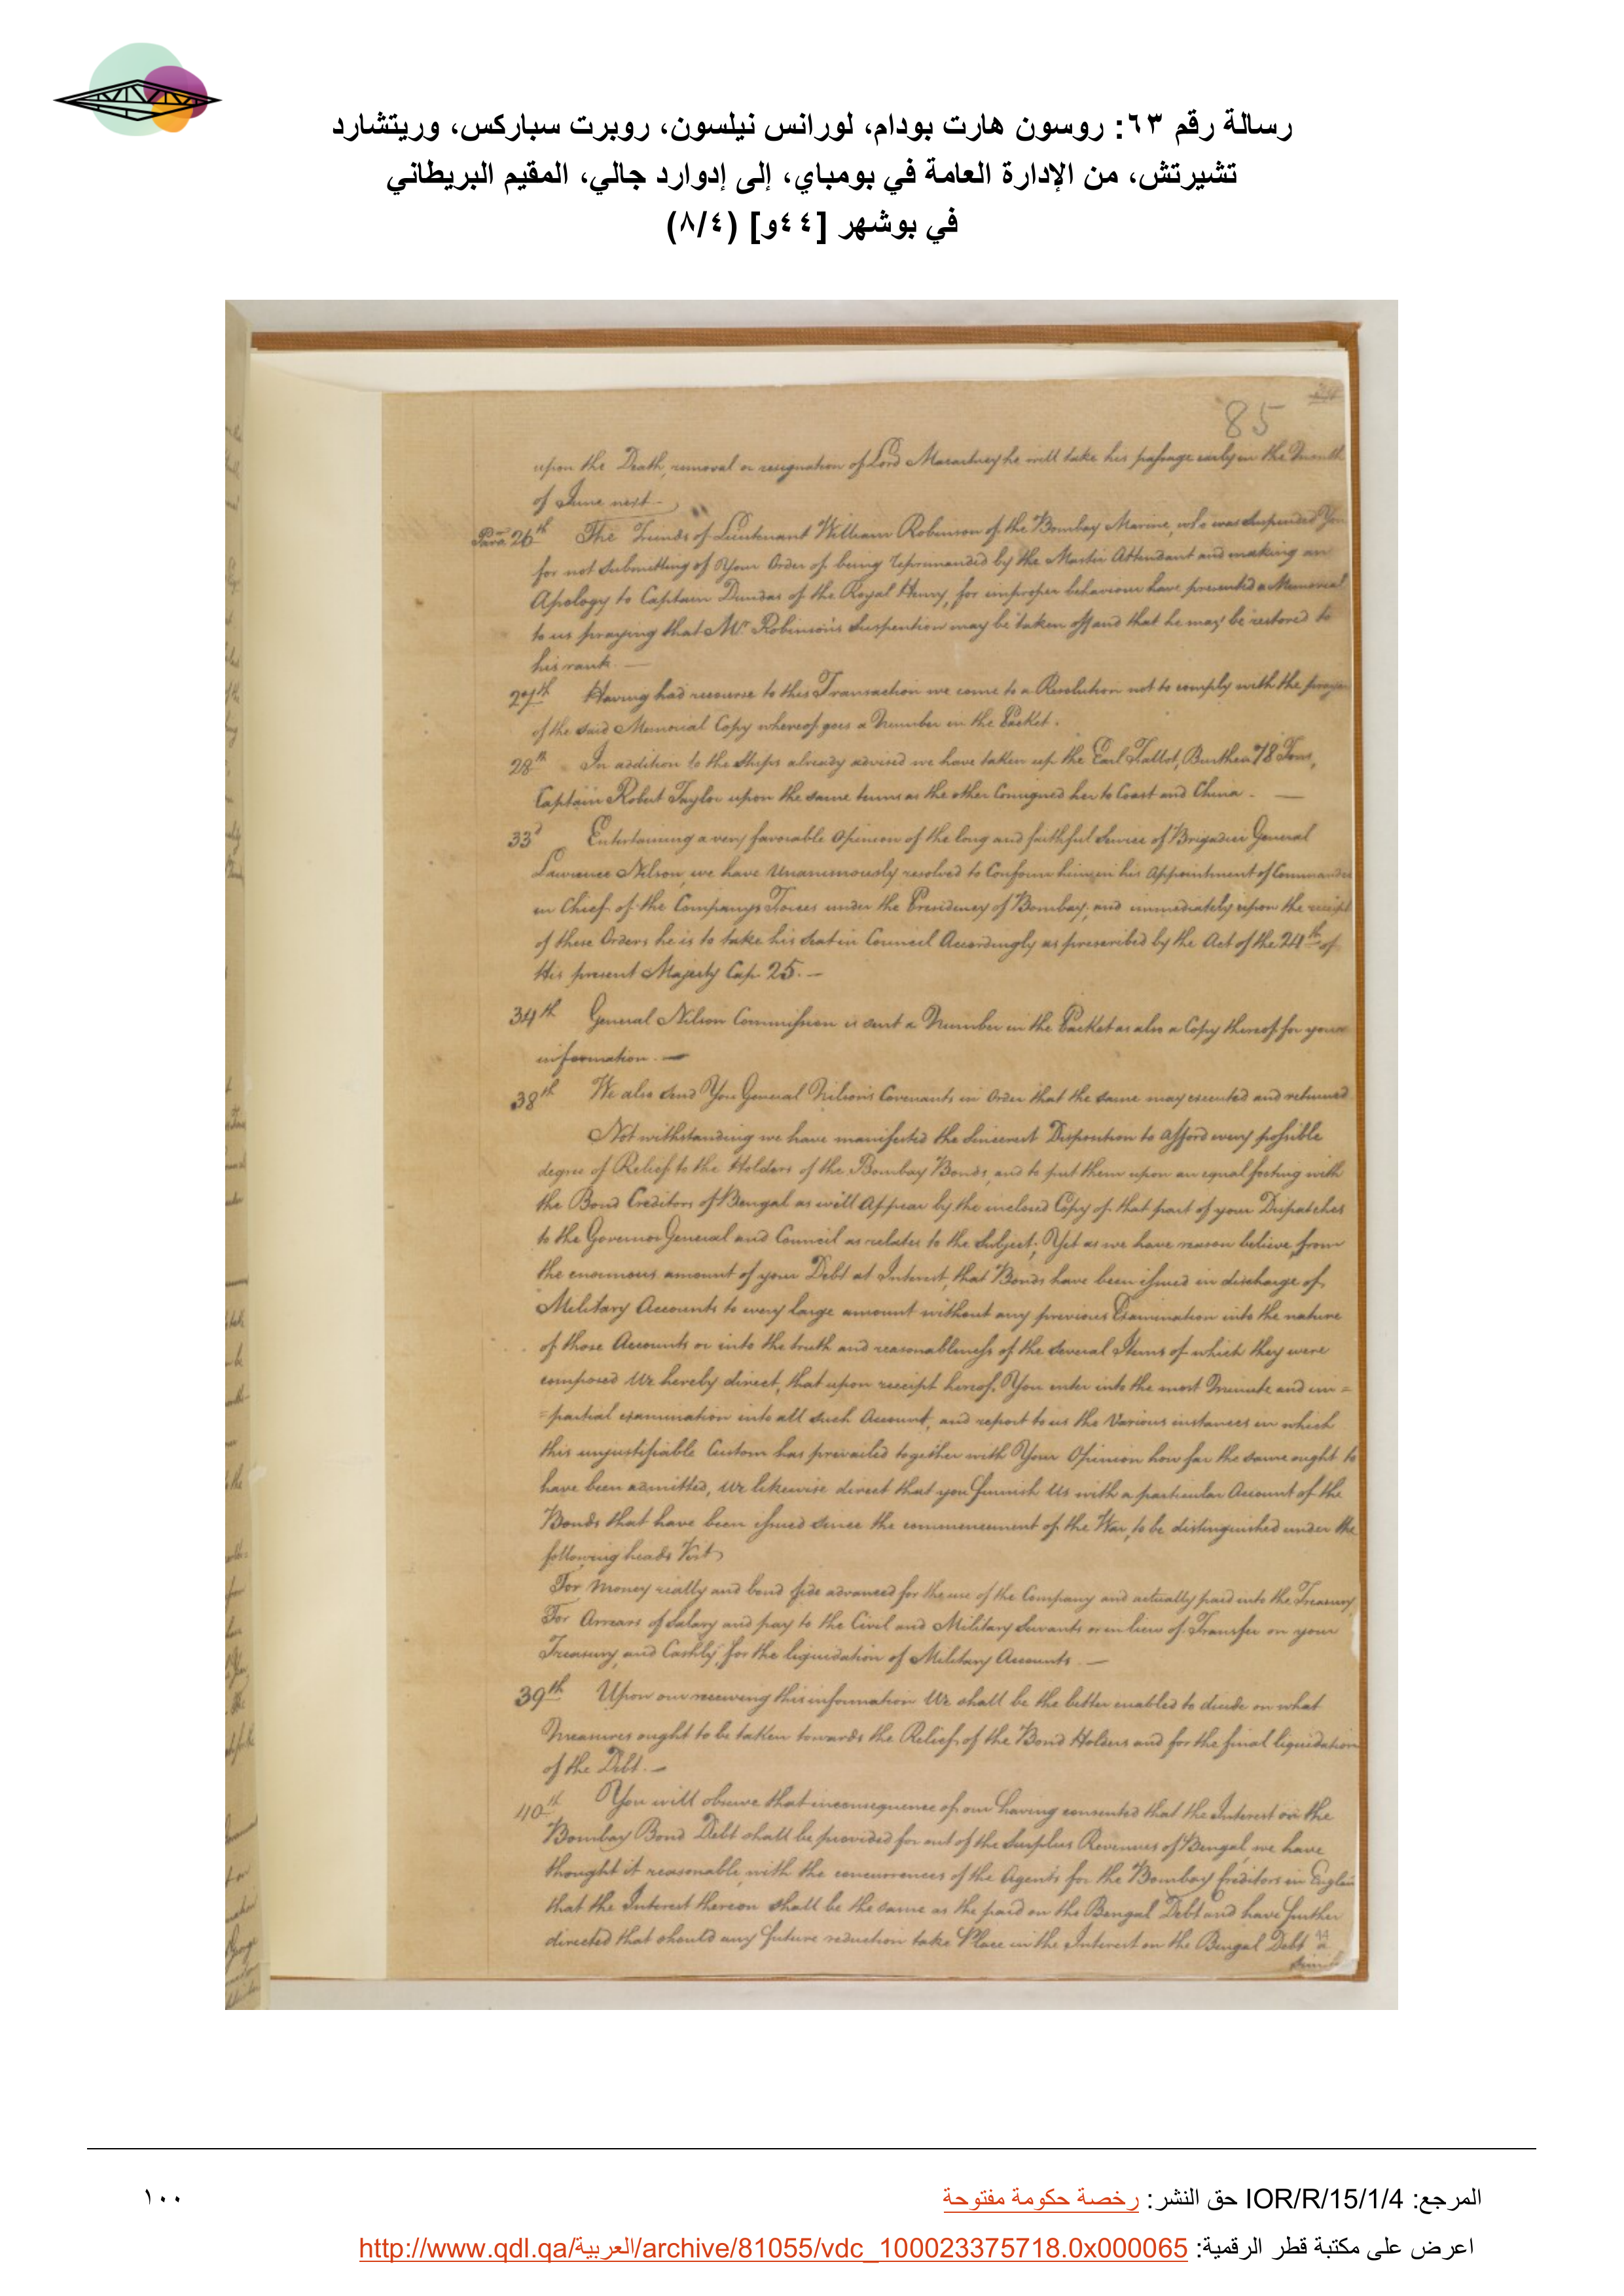 رسالة رقم ٦٣: روسون هارت بودام، لورانس نيلسون، روبرت سباركس، وريتشارد
تشيرتش، من الإدارة العامة في بومباي، إلى إدوارد جالي، المقيم البريطاني
في بوشهر [٤٤و] (٨/٤)
85
upon the Death, removal or resignation of Lord Macartney he will take his passage early in the Month
of June next
Para 26th The Friends of Lieutenant William Robinson of the Bombay Marine, who was suspended
for not submitting of Your Order of being Reprimanded by the Master Attendant and making an
Apology to Captain Dundas of the Royal Henry, for improper behaviour have presented a Memorial
to us praying that Mr. Robinson's Suspention may be taken off and that he may be restored to
his rank. —
27th Having had recourse to this Transaction we come to a Resolution not to comply with the prayer
of the said Memorial Copy whereof goes a Number in the Packet.
28th In addition to the Ships already advised we have taken up the Earl Talbot, Burthen 78 Tons,
Captain Robert Taylor upon the same terms as the other Consigned her to Coast and China. —
33d Entertaining a very favorable Opinion of the long and faithful Service of Brigadier General
Lawrence Nilson, we have Unanimously resolved to Confirm him in his Appointment of Commander
in Chief of the Companys Forces under the Presidency of Bombay, and immediately upon the receipt
of these Orders he is to take his Seat in Council Accordingly as prescribed by the Act of the 24th of
His present Majesty Cap. 25. —
34th General Nilson Commission is sent a Number in the Packet as also a Copy thereof for your
information. —
38th We also send You General Nilson's Covenants in Order that the same may executed and returned
Notwithstanding we have manifested the Sincerest Disposition to afford every possible
degree of Relief to the Holders of the Bombay Bonds, and to put them upon an equal footing with
the Bond Creditors of Bengal as will Appear by the inclosed Copy of that part of your Dispatches
to the Governor General and Council as relates to the Subject; Yet as we have reason believe from
the enormous amount of your Debt at Interest, that Bonds have been issued in discharge of
Military Accounts to very large amount without any previous Examination into the nature
of those Accounts or into the truth and reasonableness of the several Items of which they were
composed We hereby direct, that upon receipt hereof, You enter into the most Minute and im=
=partial examination into all such Account, and report to us the Various instances in which
this unjustifiable Custom has prevailed together with Your Opinion how far the same ought to
have been admitted, We likewise direct that you furnish Us with a particular Account of the
Bonds that have been issued since the commencement of the War, to be distinguished under the
following heads Vizt
For Money really and bond fide advanced for the use of the Company and actually paid into the Treasury
For Arrears of Salary and pay to the Civil and Military Servants or in lieu of Transfer on your
Treasury, and Lastly, for the liquidation of Military Accounts. —
39th Upon our receiving this information We shall be the better enabled to decide on what
Measures ought to be taken towards the Relief of the Bond Holders and for the final liquidation
of the Debt. —
40th You will observe that inconsequence of our having consented that the Interest on the
Bombay Bond Debt shall be provided for out of the Surplus Revenues of Bengal, we have
thought it reasonable, with the concurrences of the Agents for the Bombay Creditors in
that the Interest thereon shall be the same as the paid on the Bengal Debt and have further
directed that should any future reduction take Place in the Interest on the Bengal Debt a
44
المرجع: IOR/R/15/1/4 حق النشر: رخصة حكومة مفتوحة
١٠٠
اعرض على مكتبة قطر الرقمية: http://www.qdl.qa/العربية/archive/81055/vdc_100023375718.0x000065